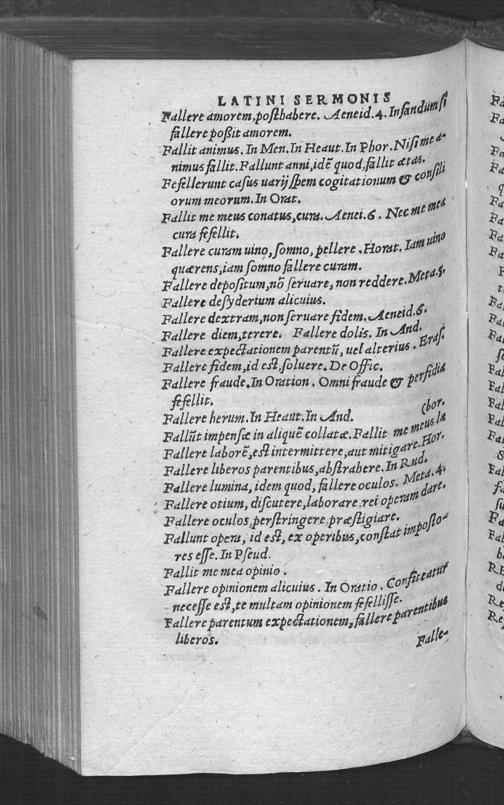 LATINI SERMONIS
Fallere amorem, posthabere. Aeneid. 4. Infandum si
fallere poßit amorem.
Fallit animus. In Men. In Heaut. In Phor. Nisi me a-
nimus fallit. Fallunt anni, idē quod, fallit ætas.
Fefellerunt casus uarij spem cogitationum & consili
orum meorum. In Orat.
Fallit me meus conatus, cura. Aenei. 6. Nec me mea
cura fefellit.
Fallere curam uino, somno, pellere. Horat. Iam uino
quærens, iam somno fallere curam.
Fallere depositum, nō seruare, non reddere. Meta. 5.
Fallere desyderium alicuius.
Fallere dextram, non seruare fidem. Aeneid. 6.
Fallere diem, terere. Fallere dolis. In And.
Fallere expectationem parentū, uel alterius. Eras.
Fallere fidem, id est, soluere. De Offic.
Fallere fraude. In Oration. Omni fraude & perfidia
fefellit.
Fallere herum. In Heaut. In And. (bor.
Fallūt impensæ in aliquē collatæ. Fallit me meus la
Fallere laborē, est intermittere, aut mitigare. Hor.
Fallere liberos parentibus, abstrahere. In Rud.
Fallere lumina, idem quod, fallere oculos. Meta. 4.
Fallere otium, discutere, laborare. rei operam dare.
Fallere oculos, perstringere, præstigiare.
Fallunt opera, id est, ex operibus, constat imposto-
res esse. In Pseud.
Fallit me mea opinio.
Fallere opinionem alicuius. In Oratio. Confiteatur
necesse est, te multam opinionem fefellisse.
Fallere parentum expectationem, fallere parentibus
liberos.
Falle-